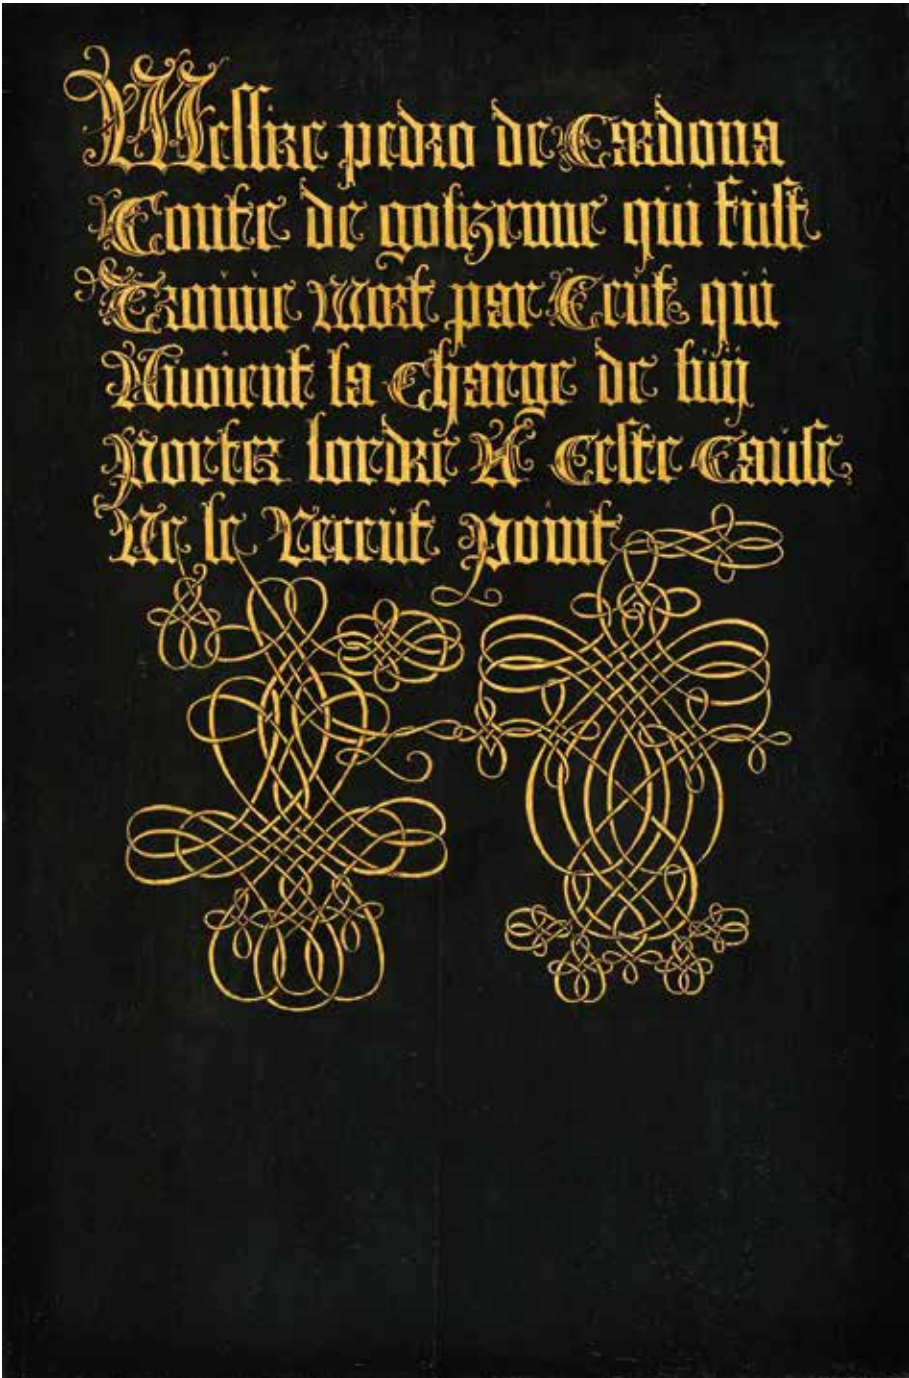 Messire pedro de Cardona
Conte de golizenne qui fuist
Trouue Mort par qui
Auoient la Charge de luy
Porter lordre A Ceste Cause
Ne le Receut Point